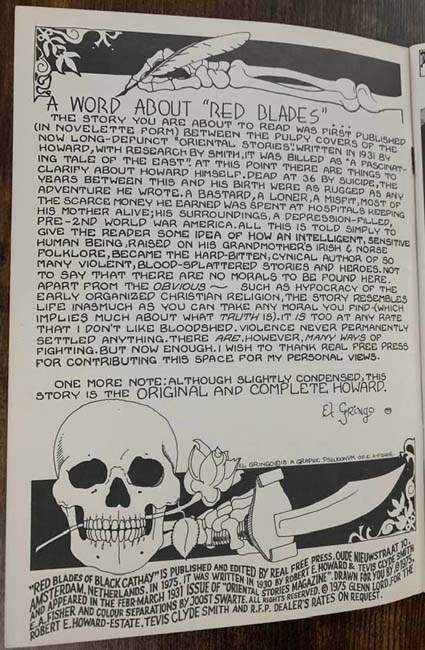 A WORD ABOUT "RED BLADES"...
THE STORY YOU ARE ABOUT TO READ WAS FIRST PUBLISHED
(IN NOVELETTE FORM) BETWEEN THE PULPY COVERS OF THE
NOW LONG-DEFUNCT "ORIENTAL STORIES". WRITTEN IN 1931 BY
HOWARD, WITH RESEARCH BY SMITH, IT WAS BILLED AS "A FASCINAT-
ING TALE OF THE EAST". AT THIS POINT THERE ARE THINGS TO
CLARIFY ABOUT HOWARD HIMSELF. DEAD AT 36 BY SUICIDE, THE
YEARS BETWEEN THIS AND HIS BIRTH WERE AS RUGGED AS ANY
ADVENTURE HE WROTE. A BASTARD, A LONER, A MISFIT, MOST OF
THE SCARCE MONEY HE EARNED WAS SPENT AT HOSPITALS KEEPING
HIS MOTHER ALIVE; HIS SURROUNDINGS, A DEPRESSION-FILLED,
PRE-2ND WORLD WAR AMERICA. ALL THIS IS TOLD SIMPLY TO
GIVE THE READER SOME IDEA OF HOW AN INTELLIGENT, SENSITIVE
HUMAN BEING, RAISED ON HIS GRANDMOTHER'S IRISH & NORSE
FOLKLORE, BECAME THE HARD-BITTEN, CYNICAL AUTHOR OF SO
MANY VIOLENT, BLOOD-SPLATTERED STORIES AND HEROES. NOT
TO SAY THAT THERE ARE NO MORALS TO BE FOUND HERE.
APART FROM THE OBVIOUS ~ SUCH AS HYPOCRACY OF THE
EARLY ORGANIZED CHRISTIAN RELIGION, THE STORY RESEMBLES
LIFE INASMUCH AS YOU CAN TAKE ANY MORAL YOU FIND (WHICH
IMPLIES MUCH ABOUT WHAT TRUTH IS). IT IS TOO AT ANY RATE
THAT I DON'T LIKE BLOODSHED. VIOLENCE NEVER PERMANENTLY
SETTLED ANYTHING. THERE ARE, HOWEVER, MANY WAYS OF
FIGHTING. BUT NOW ENOUGH. I WISH TO THANK REAL FREE PRESS
FOR CONTRIBUTING THIS SPACE FOR MY PERSONAL VIEWS.
ONE MORE NOTE: ALTHOUGH SLIGHTLY CONDENSED, THIS
STORY IS THE ORIGINAL AND COMPLETE HOWARD.
El Gringo
EL GRINGO © IS A GRAPHIC PSEUDONYM OF E.A. FISHER.
"RED BLADES OF BLACK CATHAY" IS PUBLISHED AND EDITED BY REAL FREE PRESS. OUDE NIEUWSTRAAT 10,
AMSTERDAM, NETHERLANDS, IN 1975. IT WAS WRITTEN IN 1930 BY ROBERT E. HOWARD & TEVIS CLYDE SMITH
AND APPEARED IN THE FEBR-MARCH 1931 ISSUE OF "ORIENTAL STORIES MAGAZINE". DRAWN FOR YOU BY © 1975,
E.A. FISHER AND COLOUR SEPARATIONS BY JOOST SWARTE. ALL RIGHTS RESERVED. © 1975 GLENN LORD, FOR THE
ROBERT E. HOWARD-ESTATE, TEVIS CLYDE SMITH AND R.F.P. DEALER'S RATES ON REQUEST.